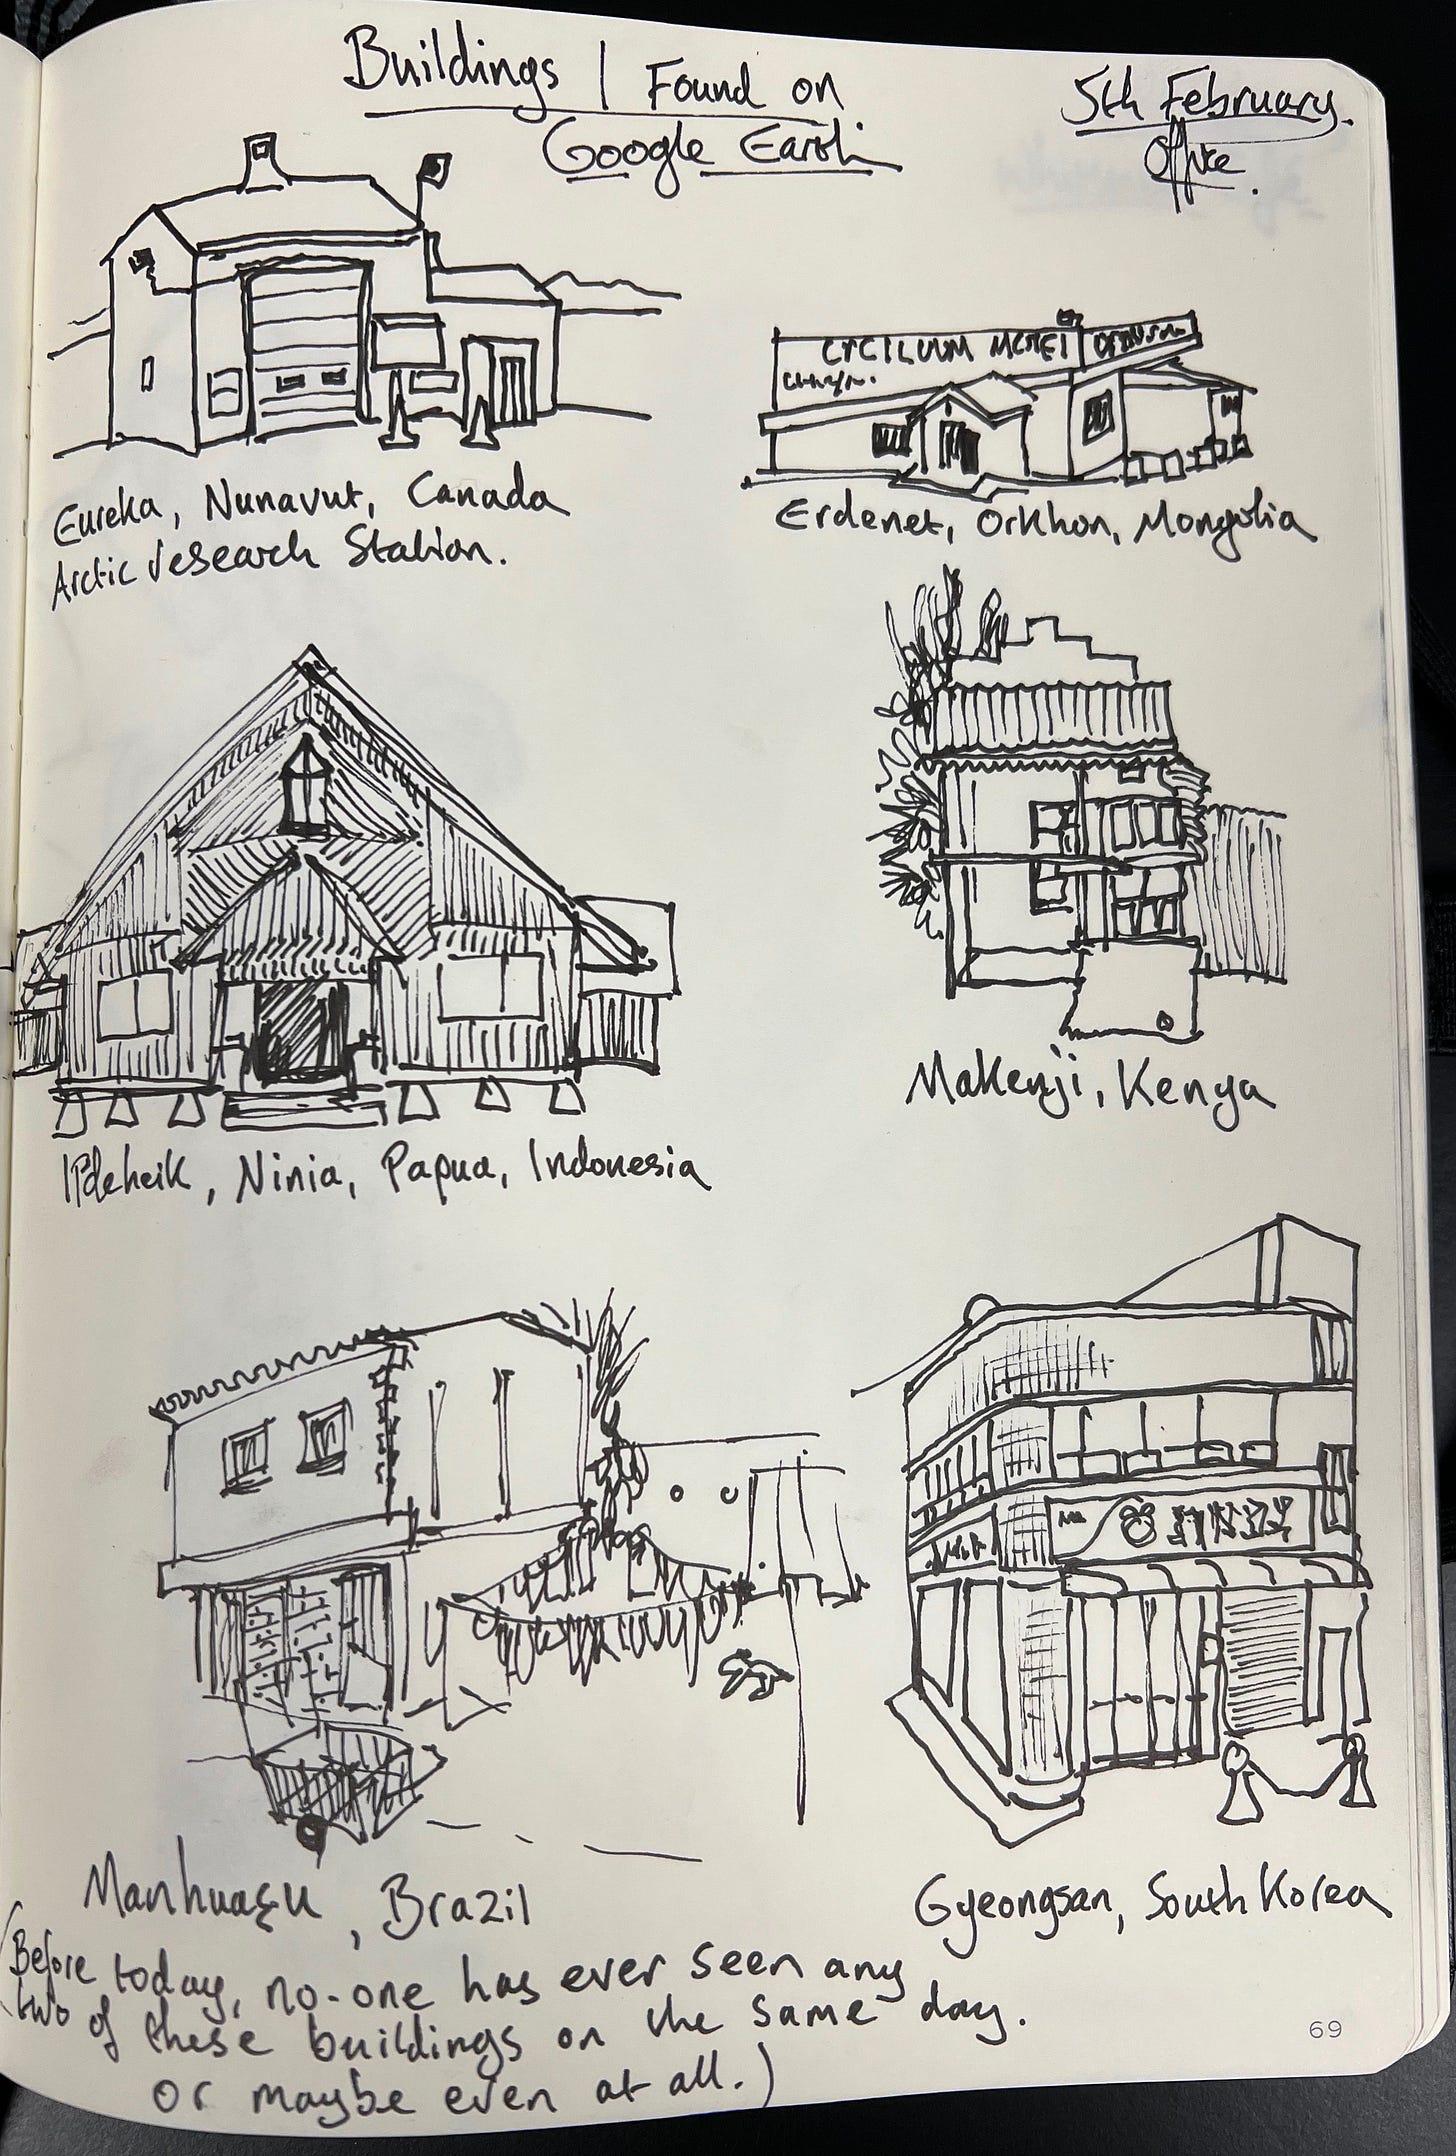 Buildings I Found on
Google Earth
5th February.
Office.
Eureka, Nunavut, Canada
Arctic research Station.
Erdenet, Orkhon, Mongolia
Makenji, Kenya
Ninia, Papua, Indonesia
Manhuaçu, Brazil
Gyeongsan, South Korea
(Before today, no-one has ever seen any
two of these buildings on the same day.
or maybe even at all.)
69